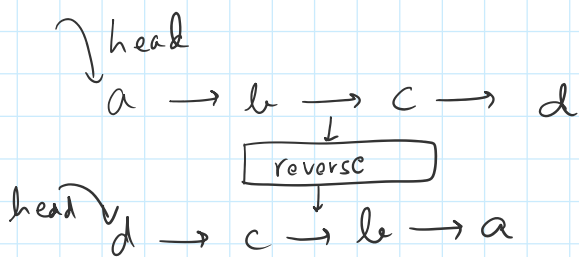 head
a → b → c → d
reverse
head
d → c → b → a